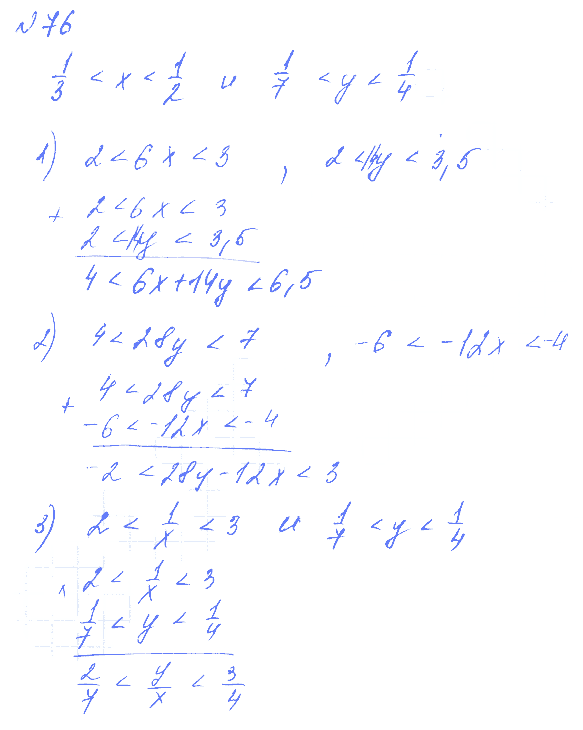 № 76
1/3 < x < 1/2 и 1/7 < y < 1/4
1) 2 < 6x < 3 , 2 < 14y < 3,5
+ 2 < 6x < 3
2 < 14y < 3,5
4 < 6x + 14y < 6,5
2) 4 < 28y < 7 , -6 < -12x < -4
+ 4 < 28y < 7
-6 < -12x < -4
-2 < 28y - 12x < 3
3) 2 < 1/x < 3 и 1/7 < y < 1/4
× 2 < 1/x < 3
1/7 < y < 1/4
2/7 < y/x < 3/4